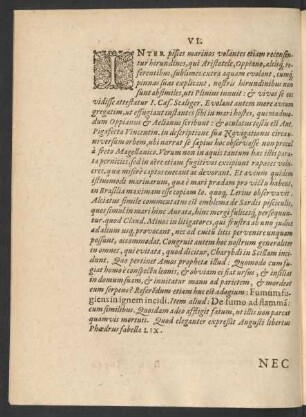 VI.
INTER pisces marinos volantes etiam recensen-
tur hirundines, qui Aristotele, Oppiano, aliisq; re-
ferentibus, sublimes extra aquam evolant, cumq;
pinnas suas explicant, nostris hirundinibus non
sunt absimiles, uti Plinius innuit: & vivas se
vidisse attestatur I. Cæs. Scaliger. Evolant autem more avium
gregatim, ut effugiant infidiantes sibi in mari hostes, quemadmo-
dum Oppianus & Aelianus scribunt: & oculatus testis est Ant.
Pigafetta Vincentin. in descriptione suæ Navigationis circa u-
niversum orbem, ubi narrat se sæpius hoc observasse non procul
à freto Magellanico. Verum non in aquis tantum hæc tibi para-
ta pernicies, sed in aëre etiam fugitivas excipiunt rapaces volu-
cres, quæ miserè captas necant ac devorant. Et avium quidem
istiusmodi marinarum, quæ è mari prædam pro victu habent,
in Brasilia maximam esse copiam Io. quoq; Lerius observavit.
Alciatus simile commentatus est emblema de Sardis pisciculis,
quos simul in mari hinc Aurata, hinc mergi fulicæq; persequun-
tur. quod Claud. Minos in litigatores, qui frustra ab uno judice
ad alium usq; provocant, nec ad causæ litis pervenire unquam
possunt, accommodat. Congruit autem hoc nostrum generaliter
in omnes, qui evitata, quod dicitur, Charybdi in Scillam inci-
dunt. Quò pertinet Amos propheta illud: Quomodo cum fu-
giat homo è conspectu leonis, & obviam ei fiat ursus, & insiliat
in domum suam, & innitatur manu ad parietem, & mordeat
eum serpens? Refer & idem etiam huc est adagium: Fumum fu-
giens in ignem incidi. Item aliud: De fumo ad flammã:
cum similibus. Quosdam adeò affligit fatum, ut illis non parcat
quamvis mortuis. Quod eleganter expressit Augusti libertus
Phædrus fabella LIX.
NEC